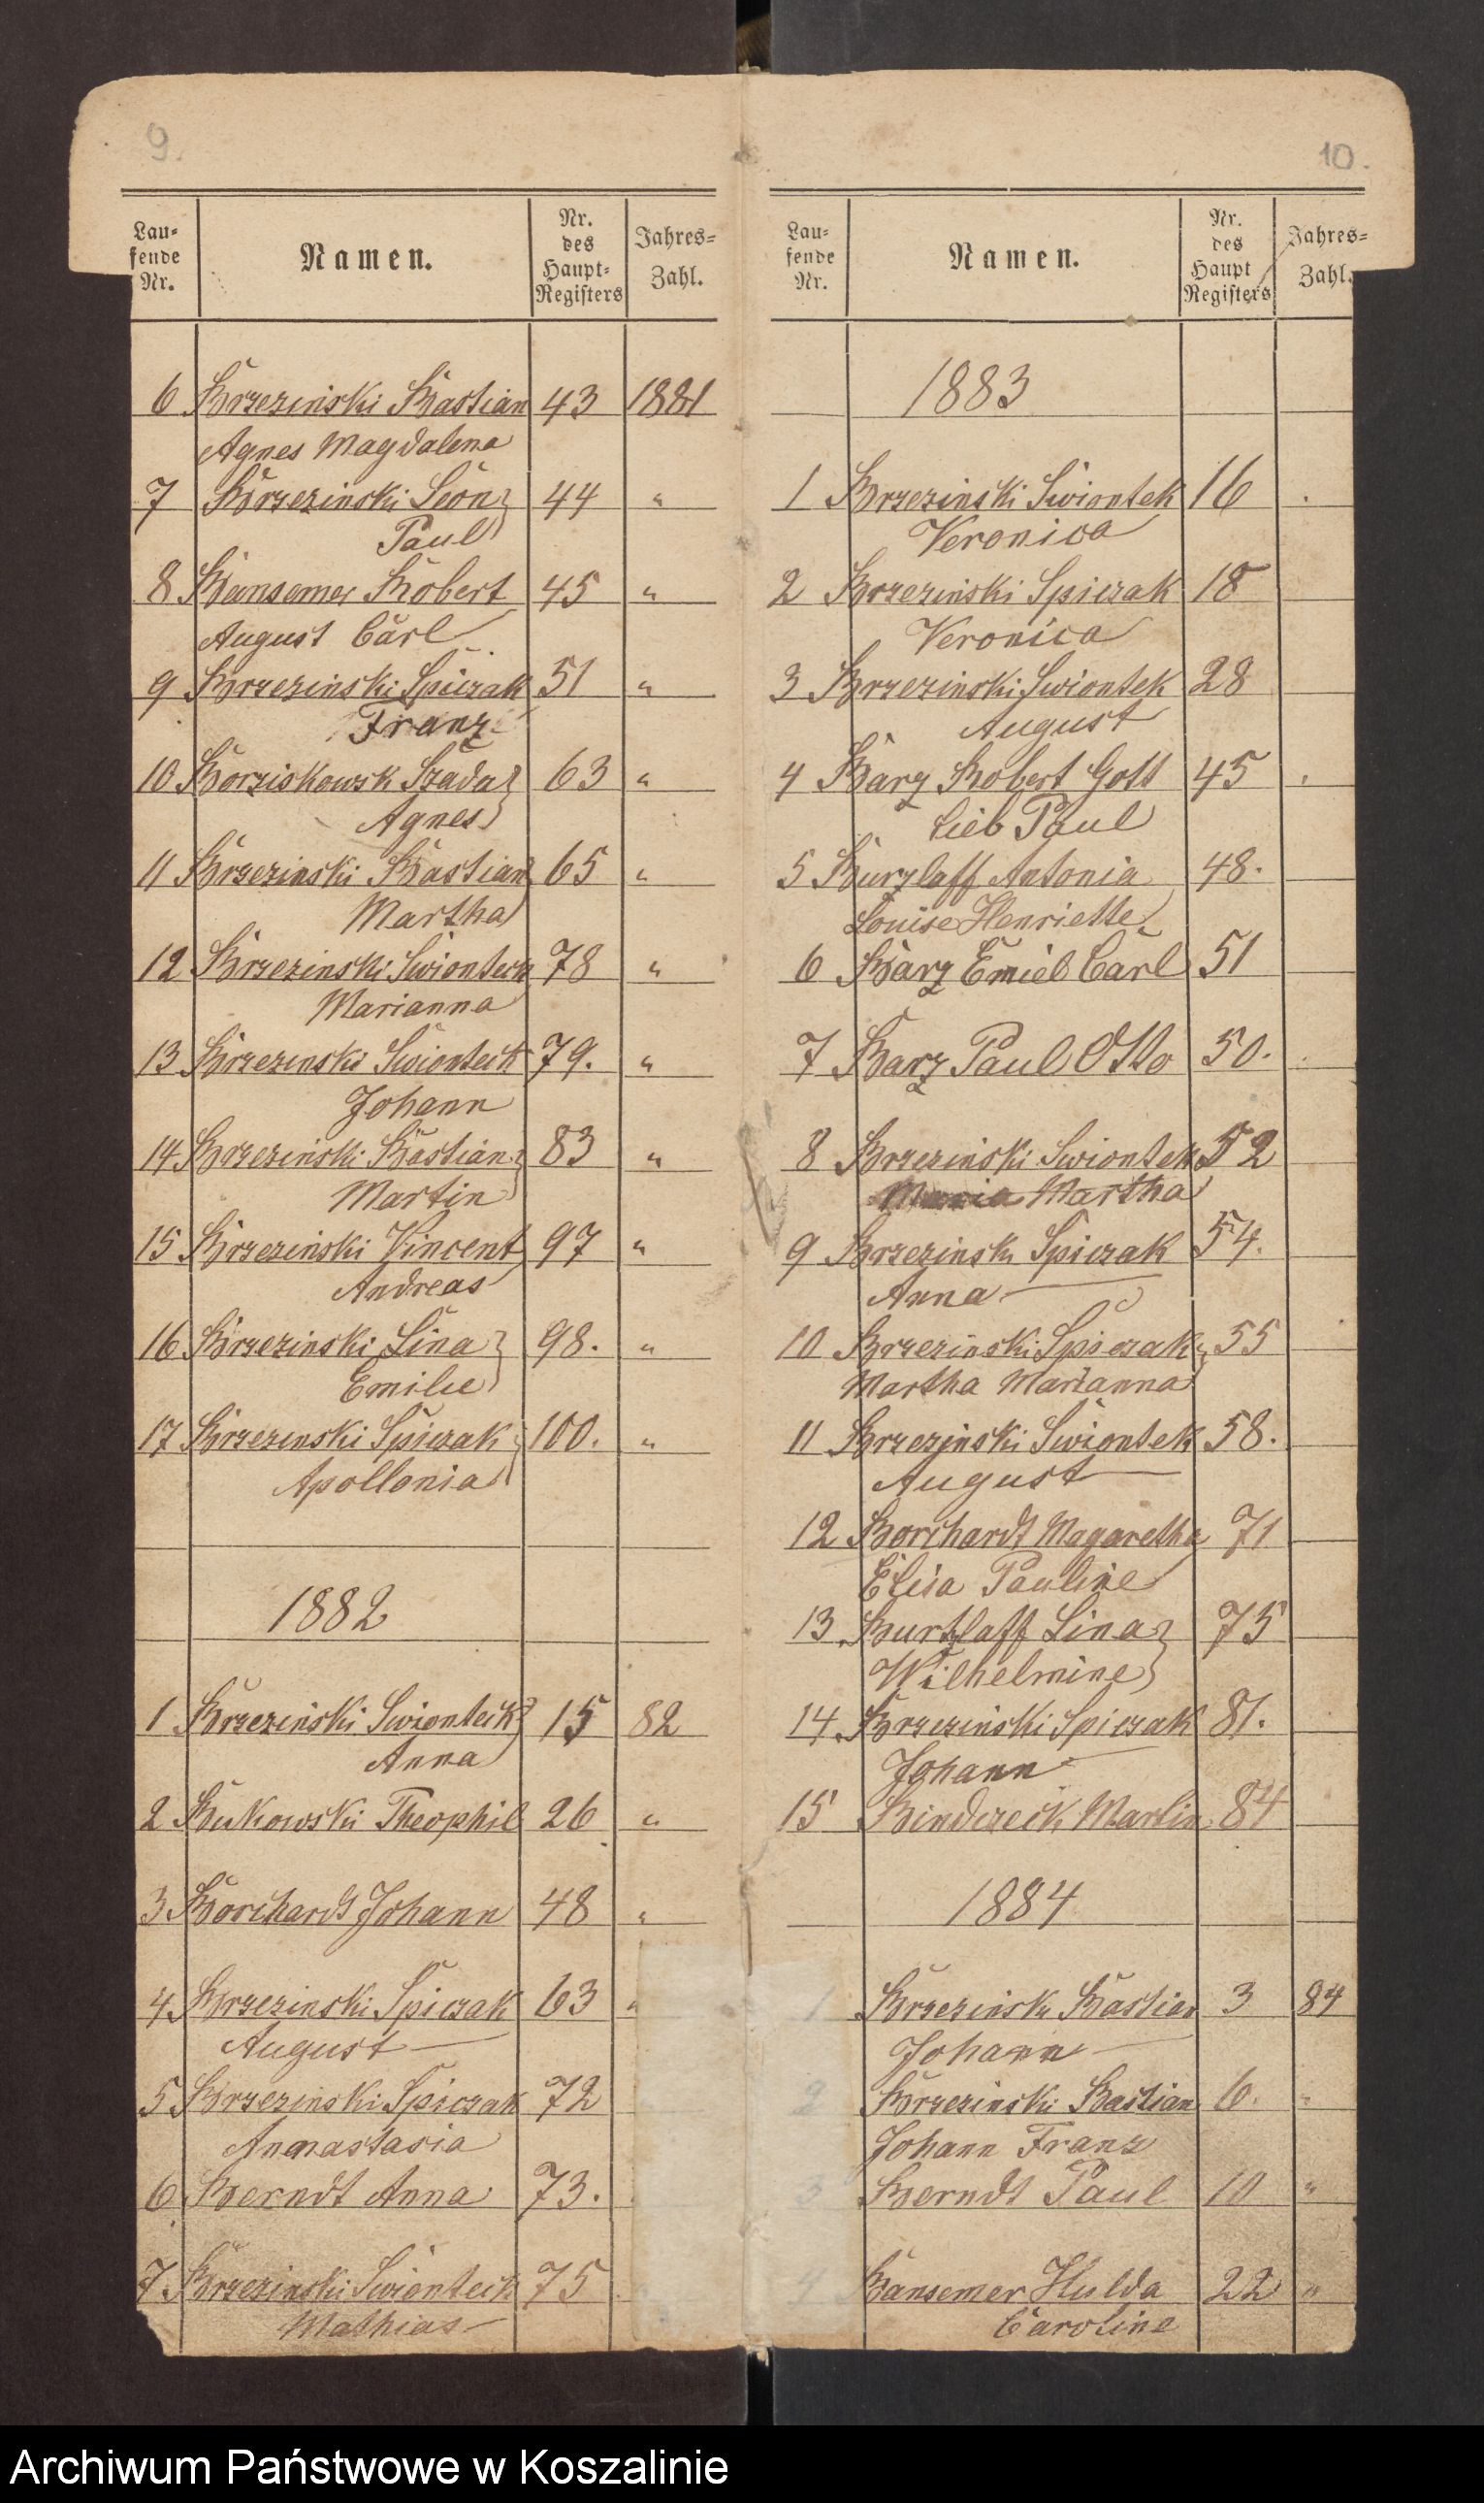 9.
Lau-
fende
Nr.
Namen.
Nr.
des
Haupt-
Registers
Jahres-
Zahl.
6 Brzezinski Bastian 43 1881
Agnes Magdalena
7 Brzezinski Leon 44 "
Paul
8 Bansemer Robert 45 "
August Carl
9 Brzezinski Spiczak 51 "
Franz
10 Borziskowsk Szada 63 "
Agnes
11 Brzezinski Bastian 65 "
Martha
12 Brzezinski Swionteck 78 "
Marianna
13 Brzezinski Swionteck 79. "
Johann
14 Brzezinski Bastian 83 "
Martin
15 Brzezinski Vincent 97 "
Andreas
16 Brzezinski Lina 98. "
Emilie
17 Brzezinski Spiczak 100. "
Apollonia
1882
1 Brzezinski Swionteck 15 82
Anna
2 Bukowski Theophil 26 "
3 Borchardt Johann 48 "
4 Brzezinski Spiczak 63 "
August
5 Brzezinski Spiczak 72
Annastasia
6 Berndt Anna 73.
7. Brzezinski Swionteck 75
Mathias
10.
Lau-
fende
Nr.
Namen.
Nr.
des
Haupt
Registers
Jahres-
Zahl.
1883
1 Brzezinski Swiontek 16
Veronica
2 Brzezinski Spiczak 18
Veronica
3 Brzezinski Swiontek 28
August
4 Barz Robert Gott 45
lieb Paul
5 Burzlaff Antonia 48.
Louise Henriette
6 Barz Emiel Carl 51
7 Barz Paul Otto 50.
8 Brzezinski Swiontek 52
Maria Martha
9 Brzezinsk Spiczak 54.
Anna
10 Brzezinski Spiczak 55
Martha Marianna
11 Brzezinski Swiontek 58.
August
12 Borchardt Magaretha 71
Elisa Pauline
13 Burtzlaff Lina 75
Wilhelmine
14 Brzezinski Spiczak 81.
Johann
15 Bindczeck Martin 84
1884
1 Brzezinski Bastian 3 84
Johann
2 Brzezinski Bastian 6. "
Johann Franz
3 Berndt Paul 10 "
4 Bansemer Hulda 22 "
Caroline
Archiwum Państwowe w Koszalinie